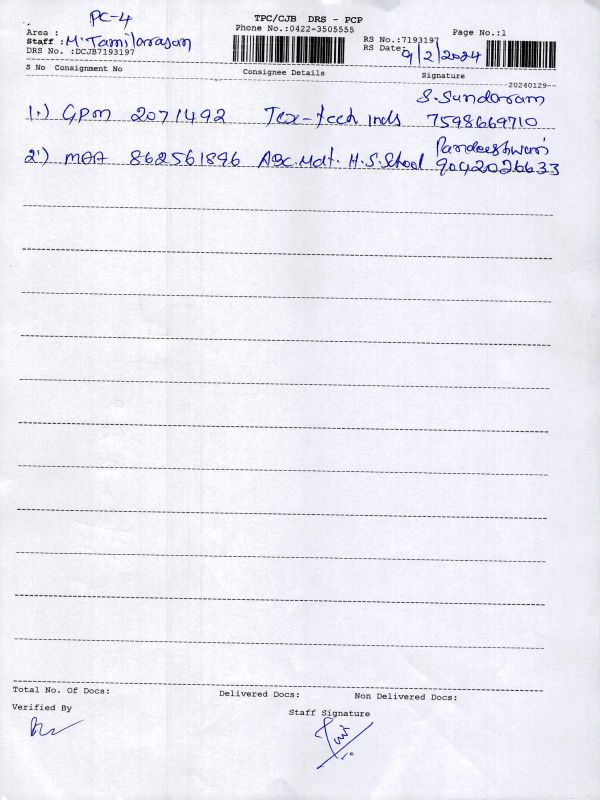 PC-4
TPC/CJB DRS - PCP
Area :
Phone No.:0422-3505555
RS No.:7193197
Page No.:1
Staff : M. Tamilarasan
RS Date: 9/2/2024
DRS No. :DCJB7193197
S No Consignment No Consignee Details Signature
--20240129--
S. Sundaram
1.) GPM 2071492 Tex-tech Inds 7598669710
Pandeeshwari
2.) MAA 862561896 ABC. Mat. H.S.School 9042026633
Total No. Of Docs: Delivered Docs: Non Delivered Docs:
Verified By
Staff Signature